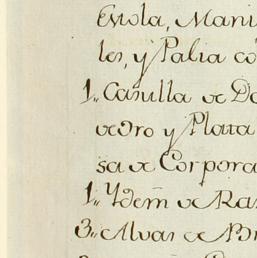 Estola, Mani
les, y Palia co
1,, Casulla de Da
de Oro y Plata
sa de Corpora
1,, Ydem̃ de Ras
3,, Alvas de Br